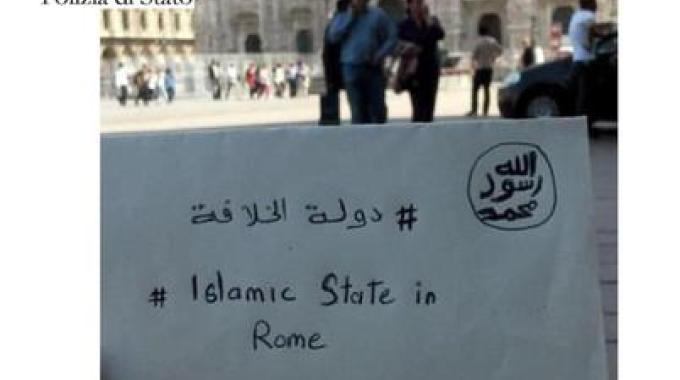 Polizia di Stato
# دولة الخلافة
الله
رسول
محمد
# Islamic State in
Rome